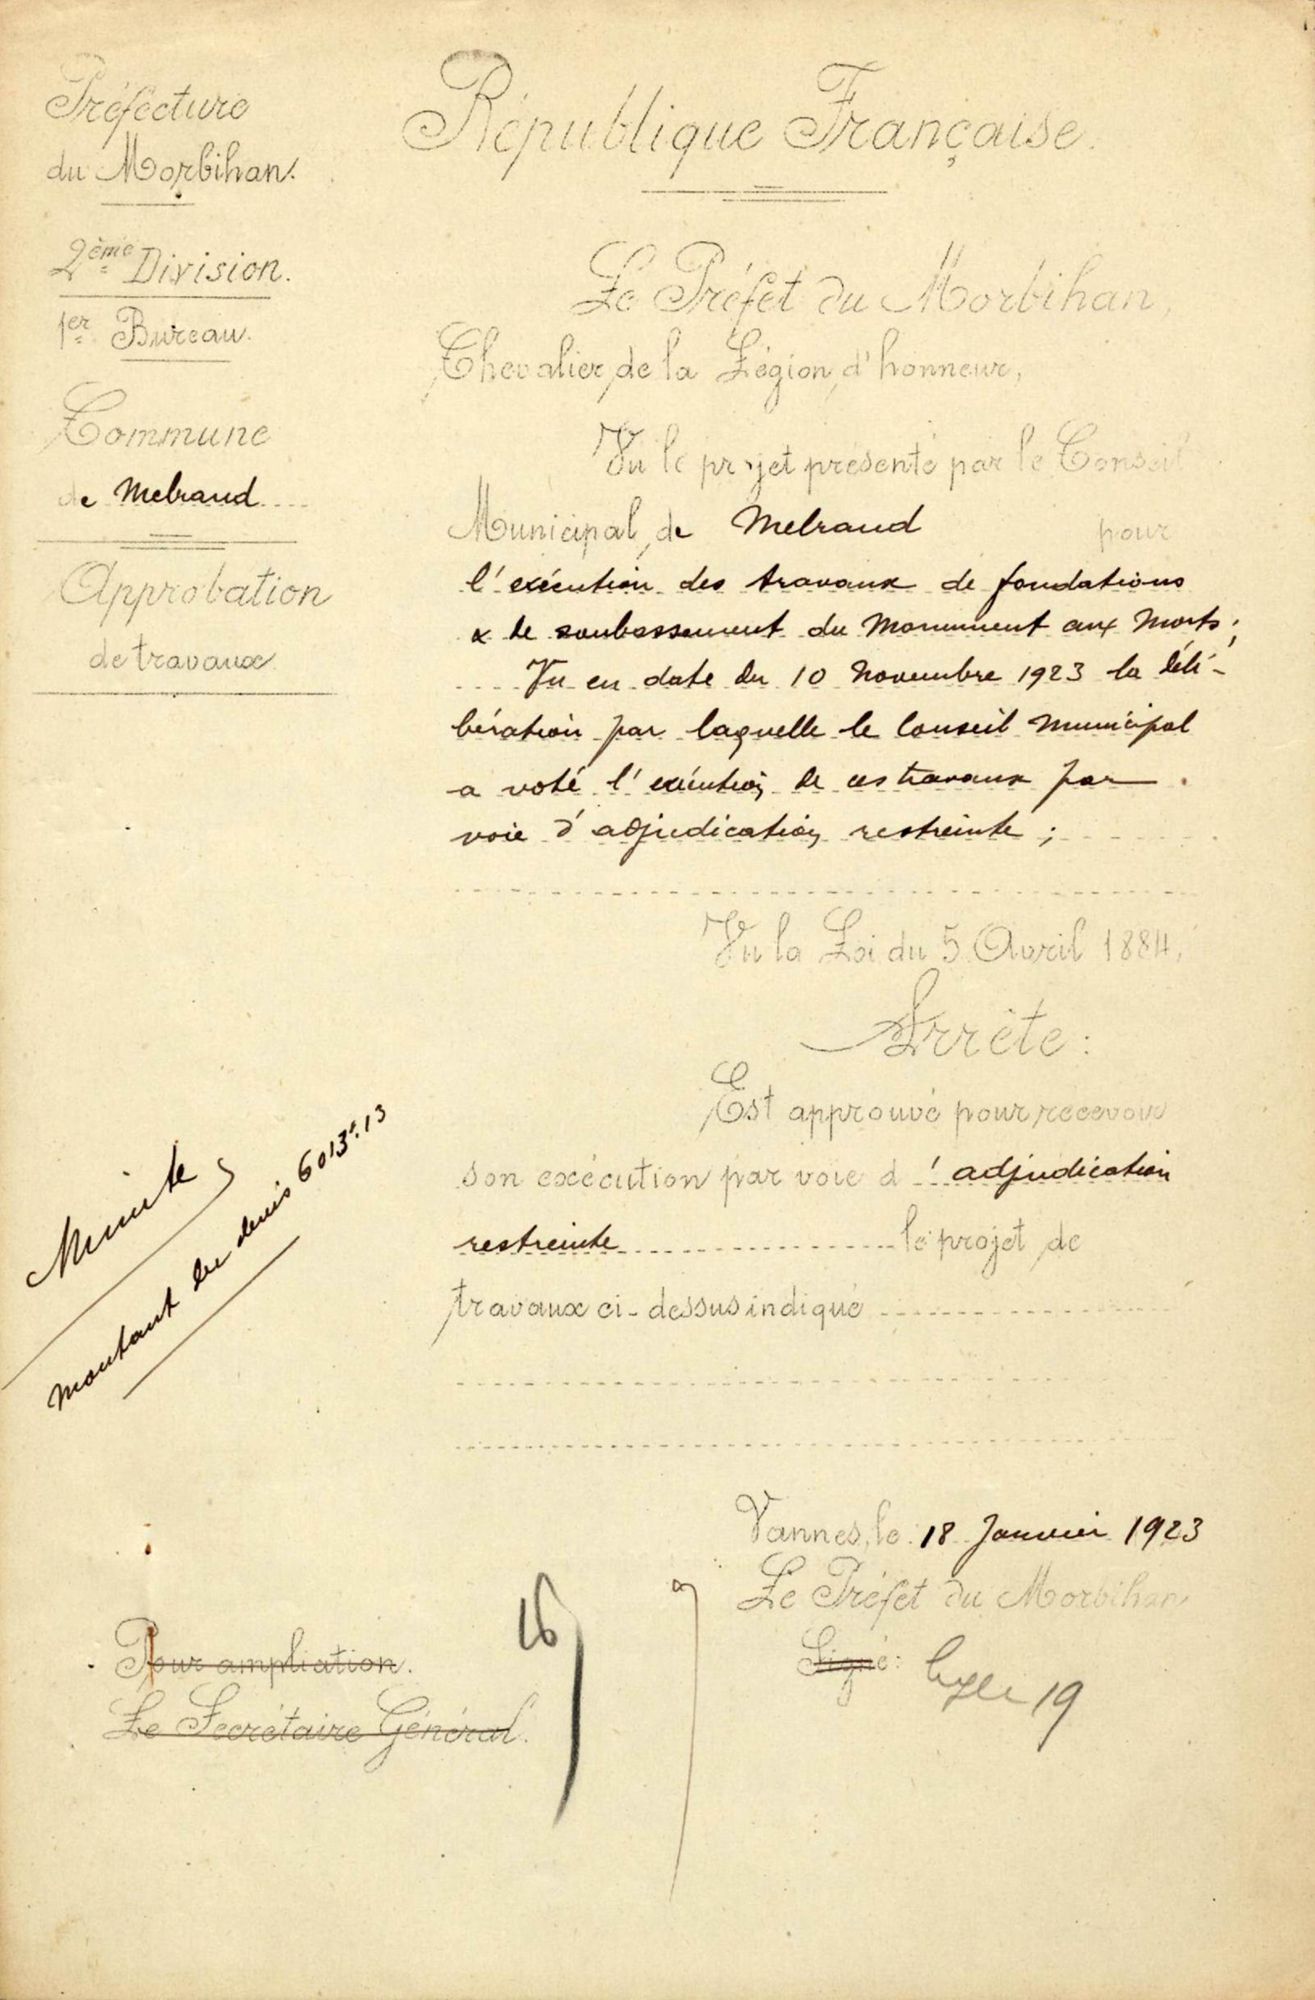 Préfecture
du Morbihan.
2ème Division.
1er Bureau.
Commune
de Melrand
Approbation
de travaux
République Française.
Le Préfet du Morbihan,
Chevalier de la Légion d'honneur,
Vu le projet présenté par le Conseil
Municipal de Melrand pour
l'exécution des travaux de fondations
& de soubassement du Monument aux Morts;
Vu en date du 10 Novembre 1923 la déli-
bération par laquelle le Conseil Municipal
a voté l'exécution de ces travaux par
voie d'adjudication restreinte;
Vu la Loi du 5 Avril 1884,
Arrête:
Est approuvé pour recevoir
son exécution par voie d'adjudication
restreinte le projet de
travaux ci-dessus indiqué
Minute
Montant du devis 6013f.13
Vannes, le 18 Janvier 1923
Le Préfet du Morbihan
Signé:
19
16
Pour ampliation.
Le Secrétaire Général.